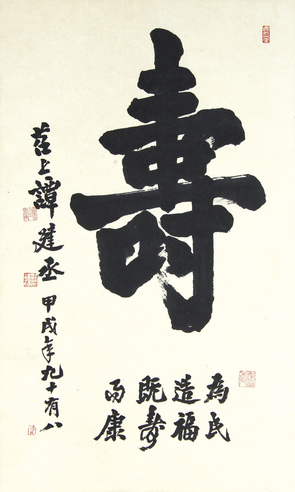 壽
為民
造福
既壽
而康
苕上譚建丞甲戌年九十有八